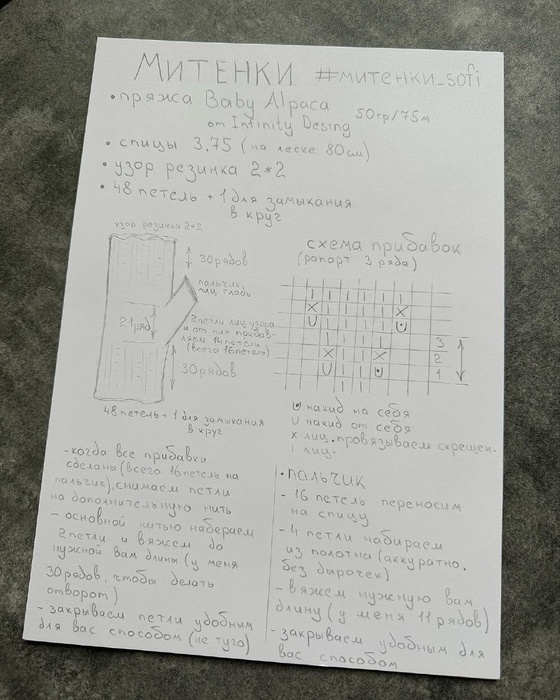 МИТЕНКИ #митенки_sofi
• пряжа Baby Alpaca 50гр/75м
от Infinity Desing
• спицы 3,75 (на леске 80см)
• узор резинка 2*2
• 48 петель + 1 для замыкания
в круг
узор резинка 2*2
30 рядов
пальчик
лиц. гладь
21 ряд
2 петли лиц. узора
и от них прибав-
ляем 14 петель
(всего 16 петель)
30 рядов
48 петель + 1 для замыкания
в круг
схема прибавок
(рапорт 3 ряда)
3
2
1
U накид на себя
U накид от себя
x лиц. провязываем скрещен.
ı лиц.
- когда все прибавки
сделаны (всего 16 петель на
пальчик), снимаем петли
на дополнительную нить
- основной нитью набираем
2 петли и вяжем до
нужной вам длины (у меня
30 рядов, чтобы делать
отворот)
- закрываем петли удобным
для вас способом (не туго)
• пальчик
- 16 петель переносим
на спицу
- 4 петли набираем
из полотна (аккуратно,
без дырочек)
- вяжем нужную вам
длину (у меня 11 рядов)
- закрываем удобным для
вас способом